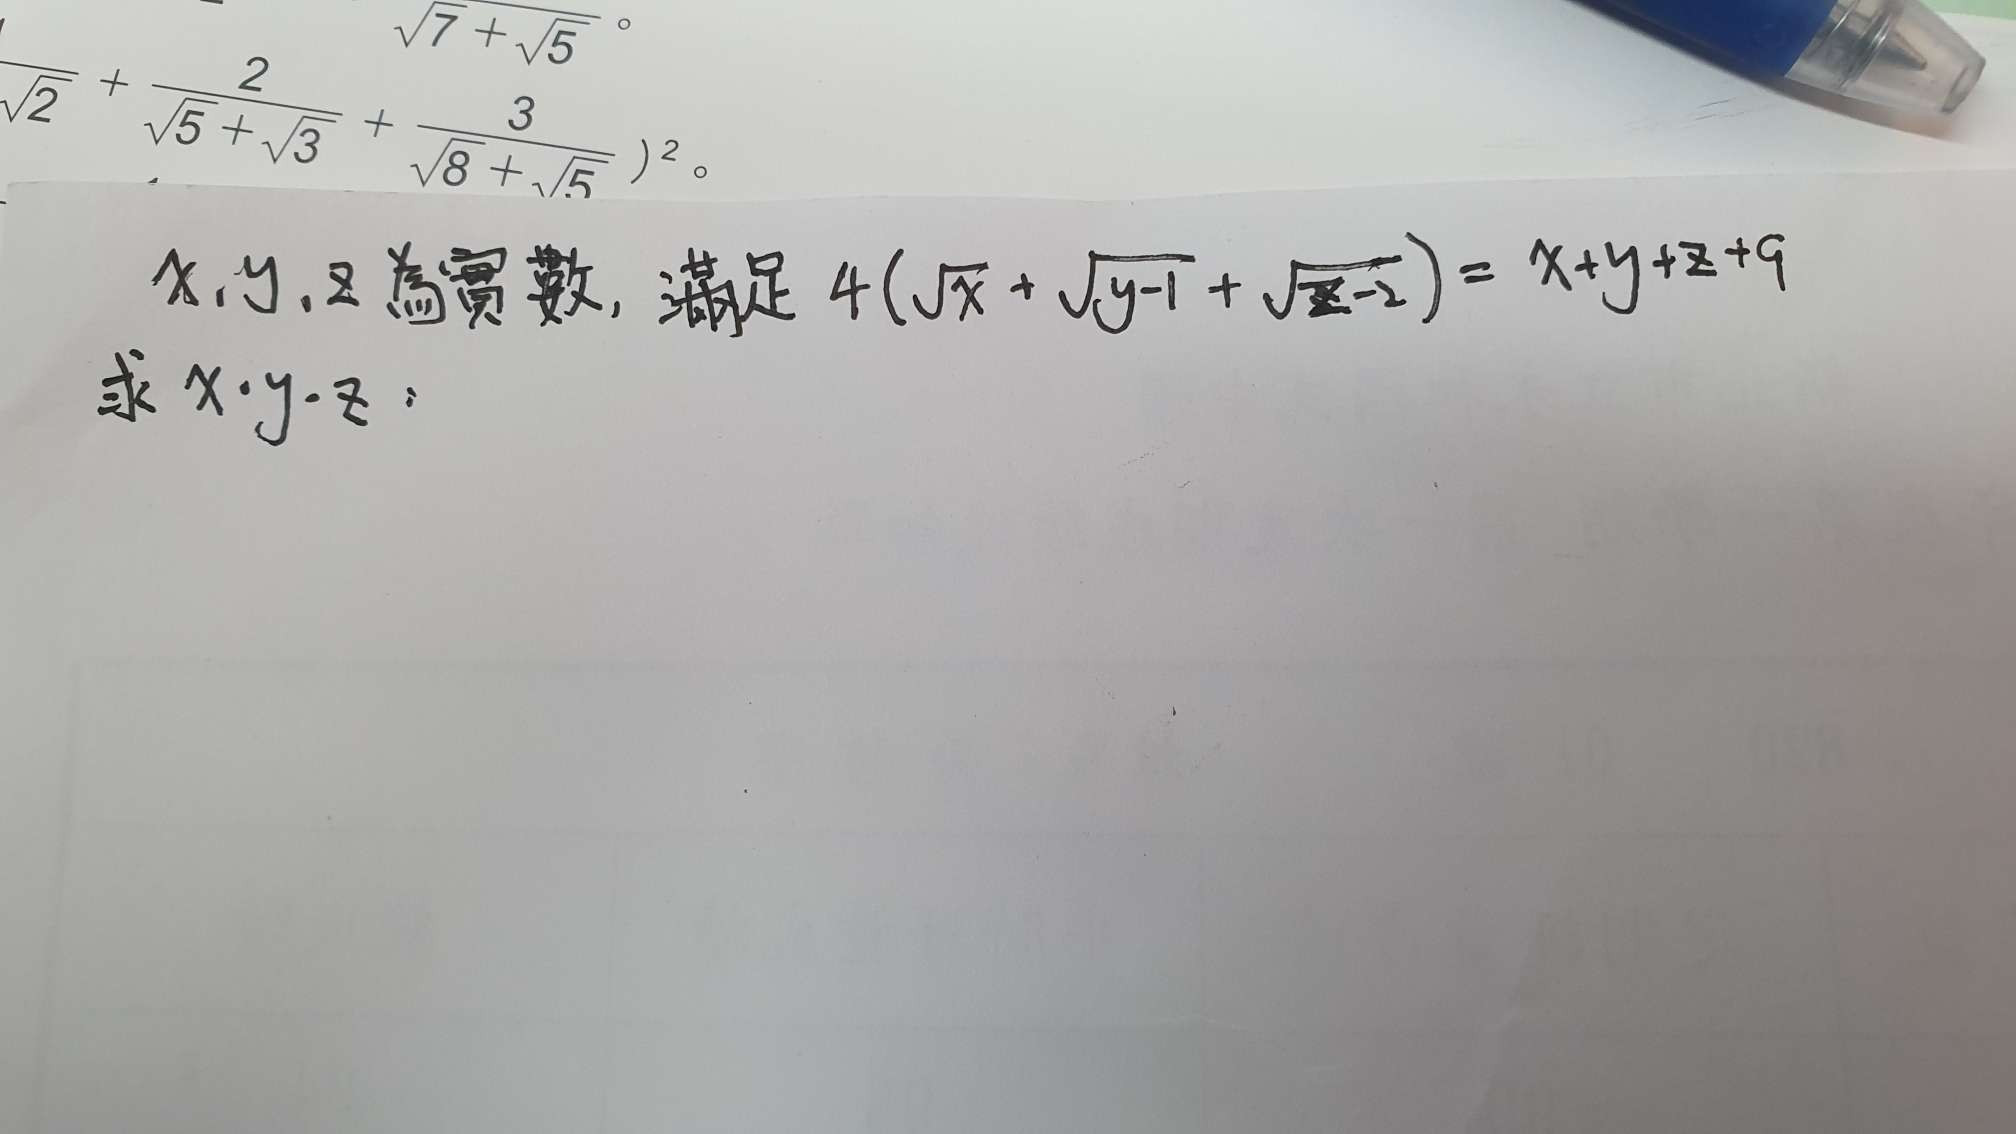 √7 + √5 。
√2 + 2/(√5 + √3) + 3/(√8 + √5) )² 。
x, y, z 為實數, 滿足 4(√x + √(y-1) + √(z-2)) = x+y+z+9
求 x·y·z :